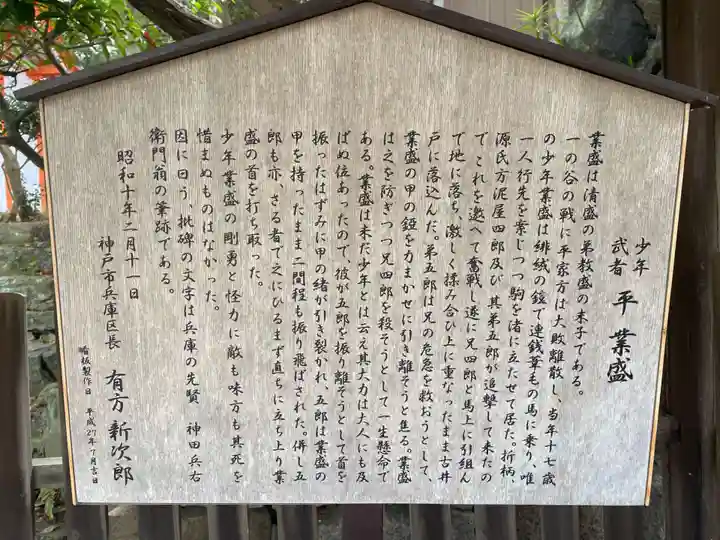 少年
武者 平業盛
業盛は清盛の弟教盛の末子である。
一の谷の戦に平家方は大敗離散し、当年十七歳
の少年業盛は緋絨の鎧で連銭葦毛の馬に乗り、唯
一人行先を案じつつ駒を渚に立たせて居た。折柄、
源氏方泥屋四郎及び其弟五郎が追撃して来たの
で これを邀へて奮戦し遂に兄四郎と馬上に引組ん
で地に落ち、激しく揉み合ひ上に重なったまま古井
戸に落込んだ。弟五郎は兄の危急を救おうとして、
業盛の甲の錏を力まかせに引き離そうと焦る。業盛
は之を防ぎつつ兄四郎を殺そうとして一生懸命で
ある。業盛は未だ少年とは云え其大力は大人にも及
ばぬ位あったので、彼が五郎を振り離そうとして首を
振ったはずみに甲の緒が引き裂かれ、五郎は業盛の
甲を持ったまま二間程も振り飛ばされた。併し五
郎も亦、さる者で之にひるまず直ちに立ち上り業
盛の首を打ち取った。
少年業盛の剛勇と怪力に敵も味方も其死を
惜まぬものはなかった。
因に曰う、此碑の文字は兵庫の先賢 神田兵右
衛門翁の筆跡である。
昭和十年二月十一日
神戸市兵庫区長 有方新次郎
看板製作日 平成27年7月吉日